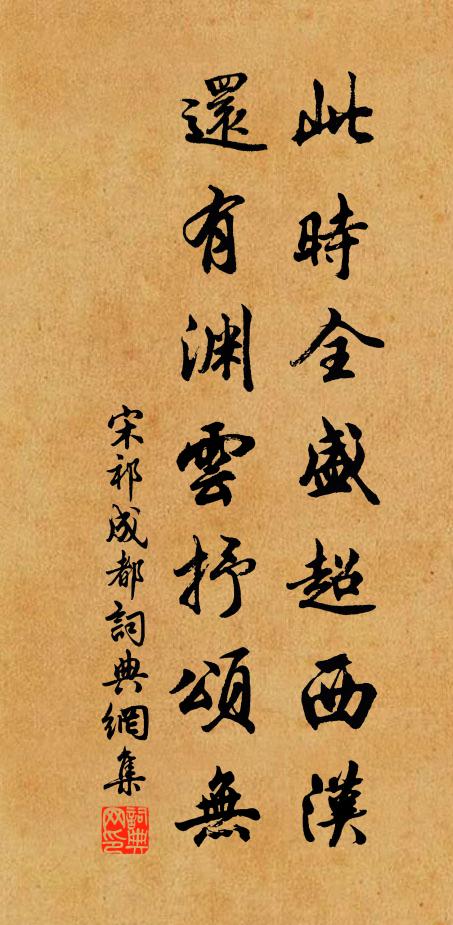 此時全盛超西漢
還有渊雲抒頌無
宋祁成都詞典網集
詞典网印